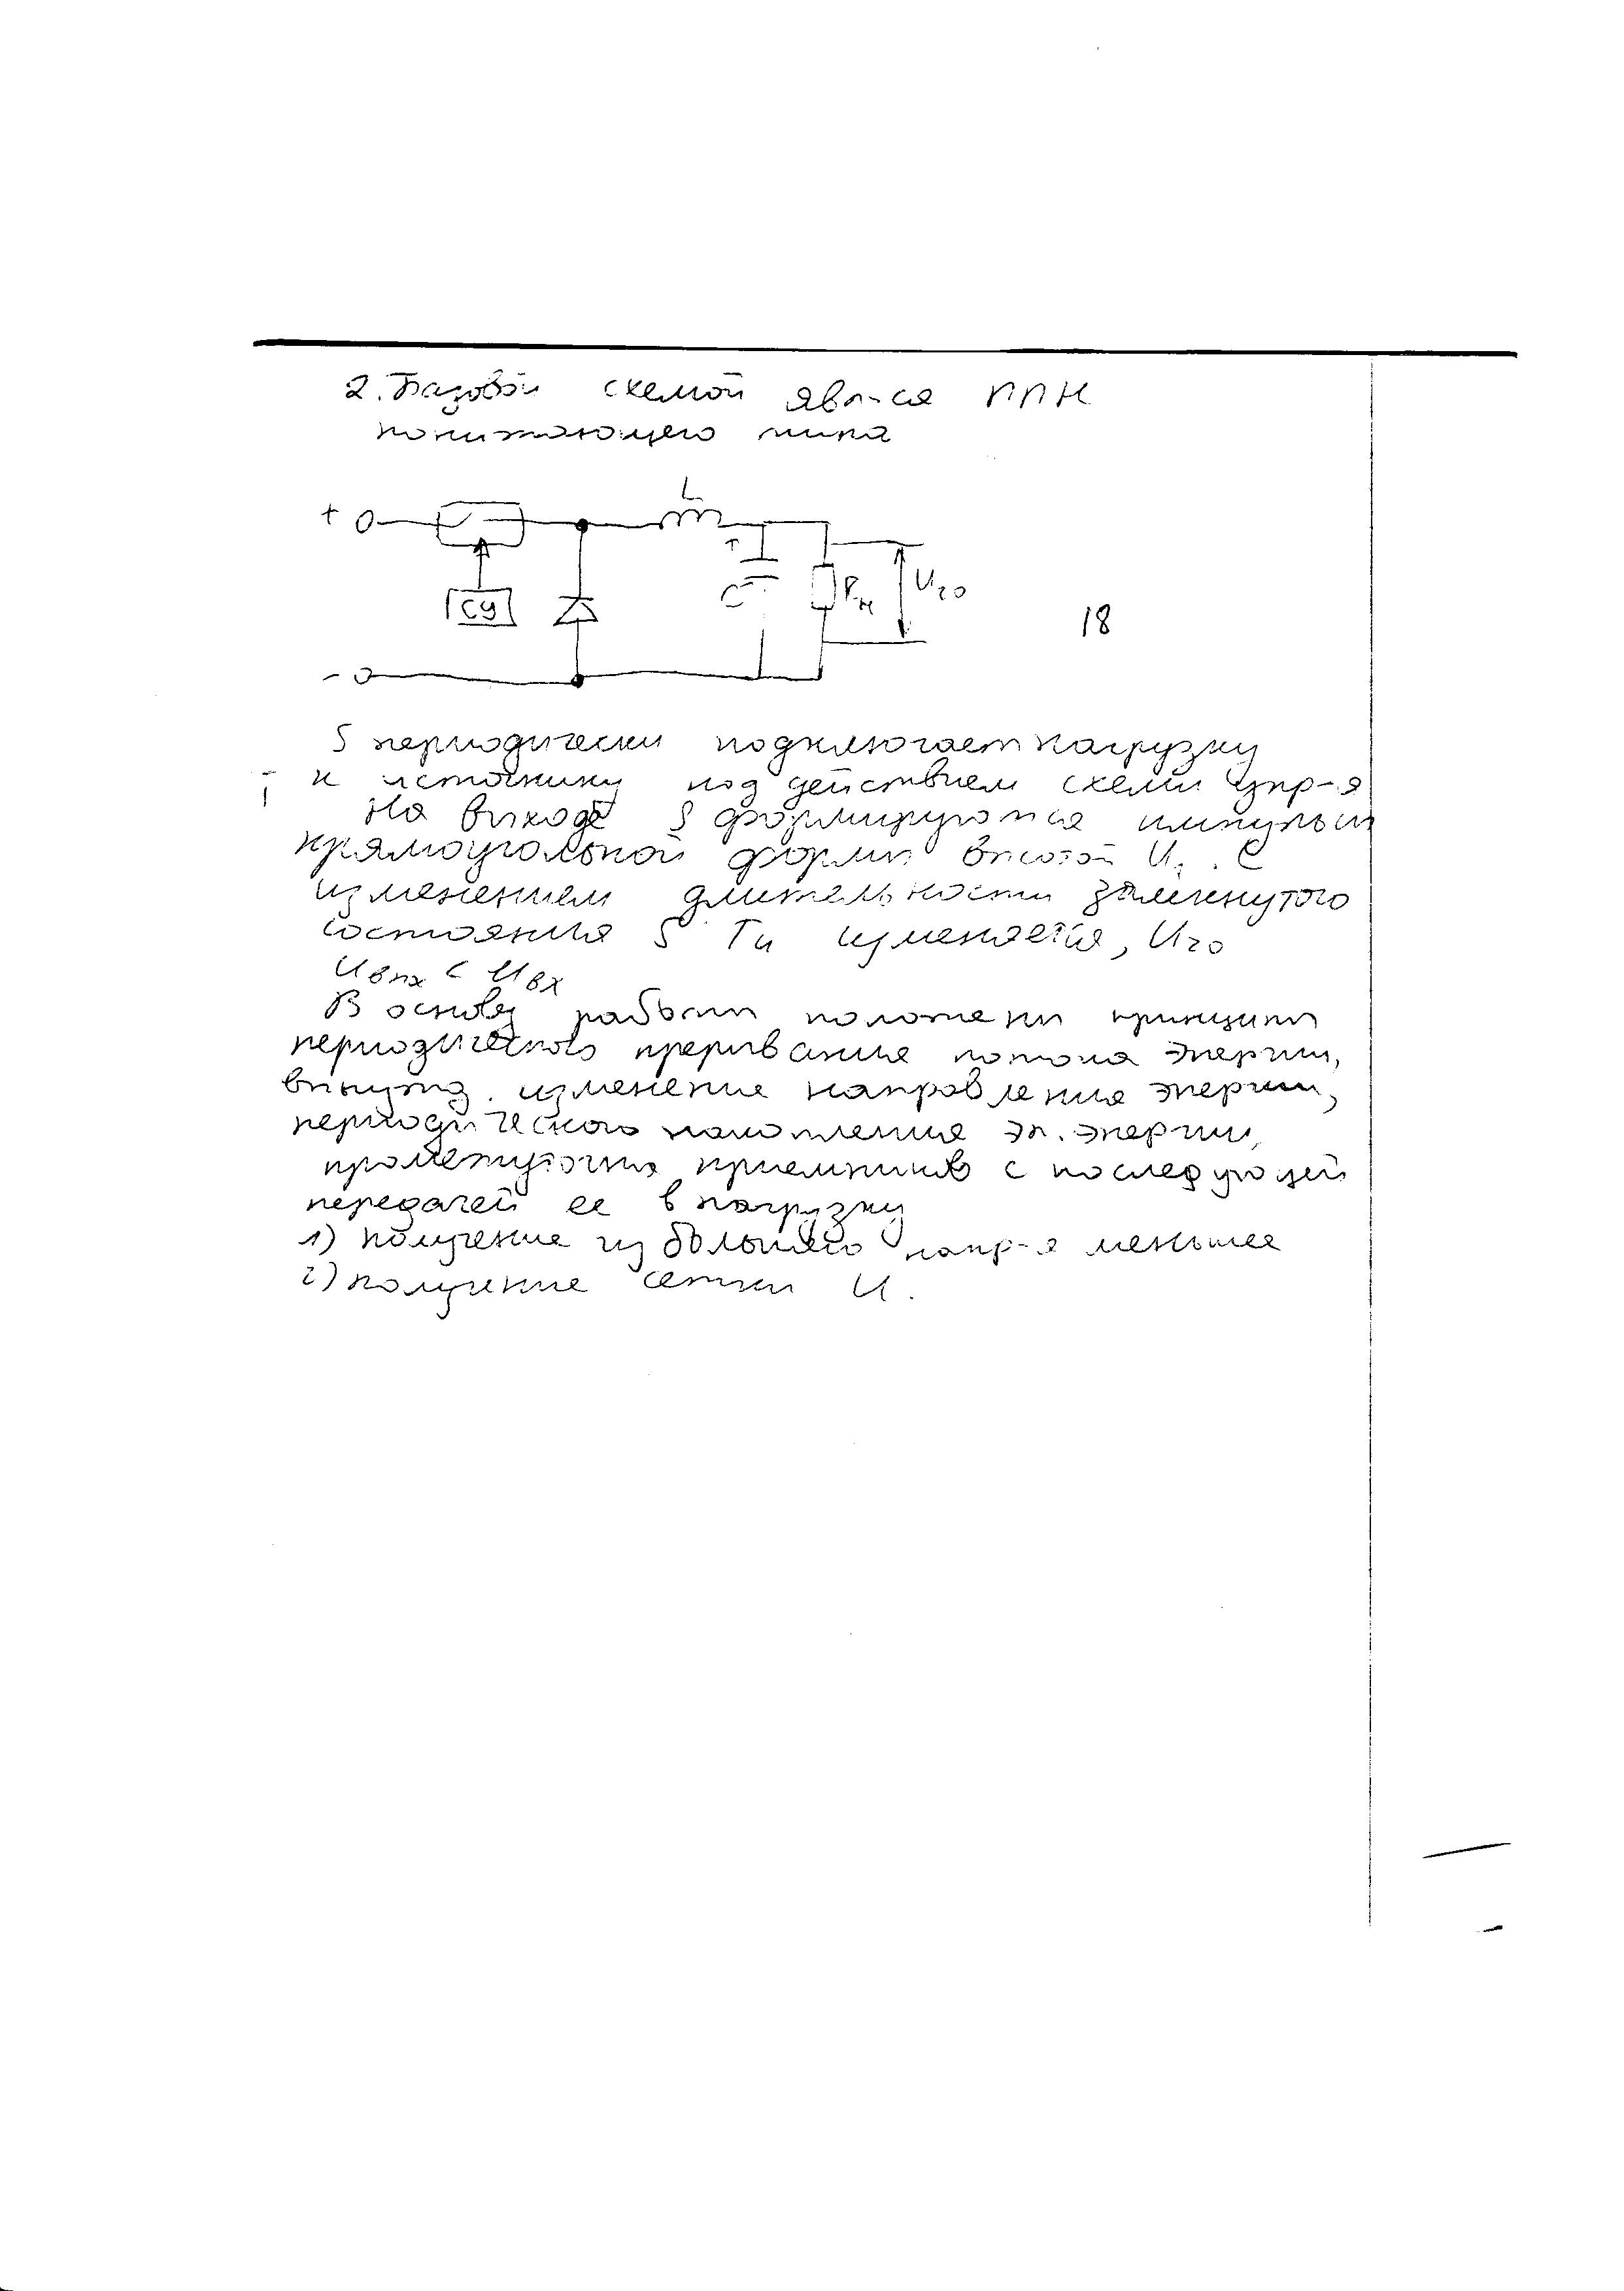 2. Базовой схемой явл-ся ППН
понижающего типа
L
+
СУ
C
Rн
U20
18
-
S периодически подключает нагрузку
к источнику под действием схемы упр-я
На выходе S формируются импульсы
прямоугольной формы высотой U2. С
изменением длительности замкнутого
состояния S Tи изменяется, U20
Uвых < Uвх
В основу работы положены принципы
периодического прерывание потока энергии,
изменение направление энергии,
периодического накопление эл. энергии,
приемников с последующей
передачей ее в нагрузку
1) получение из большего напр-я меньшее
2) получение сетки U.